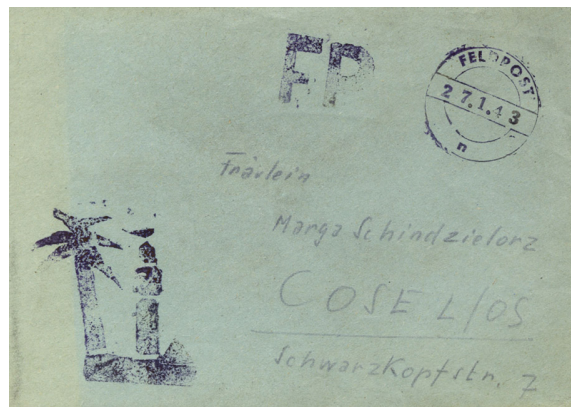 FP
FELDPOST
27.1.43
n
Fräulein
Marga Schindzielorz
COSEL/OS
Schwarzkopfstr. 7